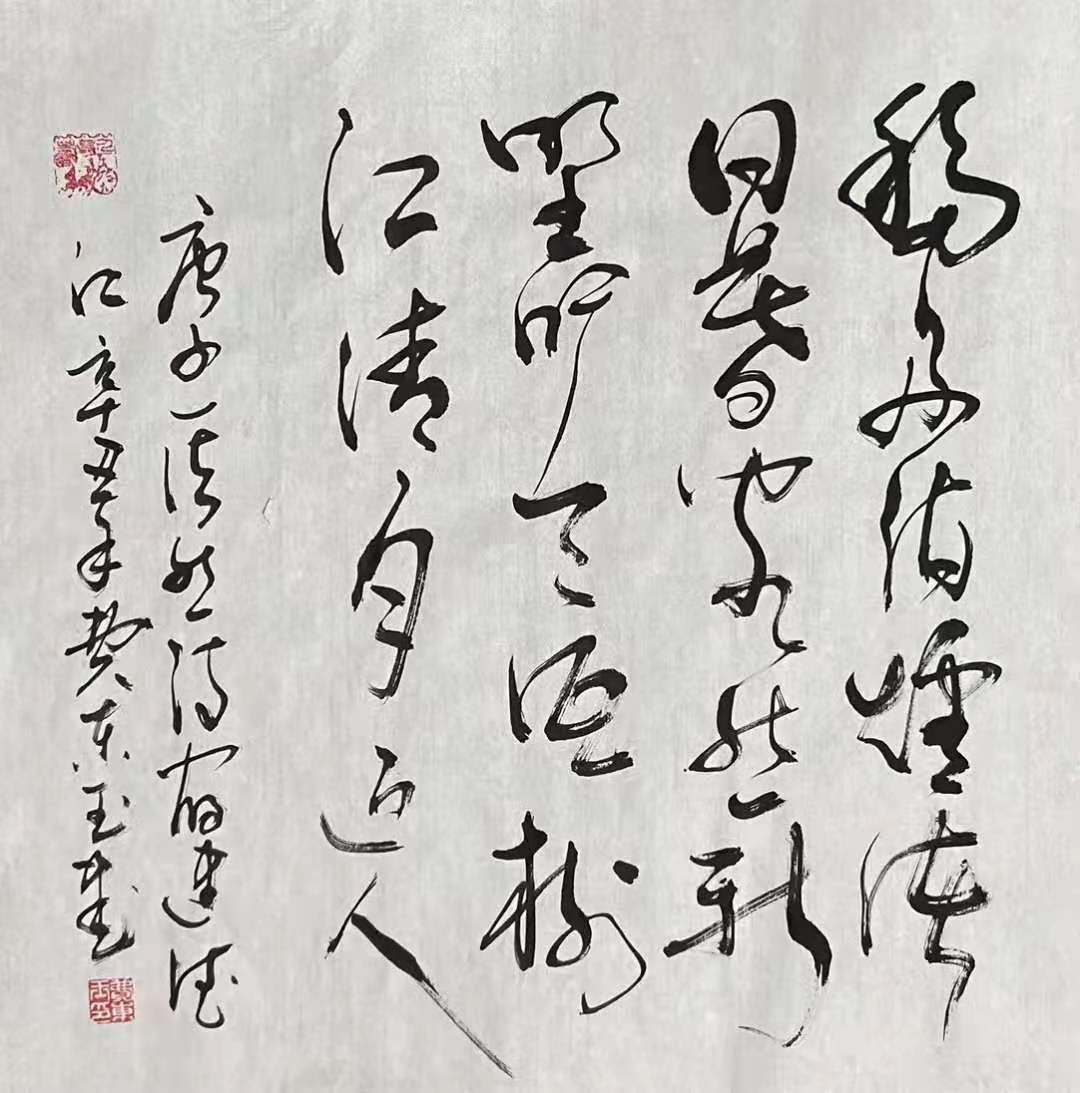 移舟泊煙渚
日暮客愁新
野旷天低树
江清月近人
唐孟浩然诗宿建德
江辛丑年费东玉书
費東玉印